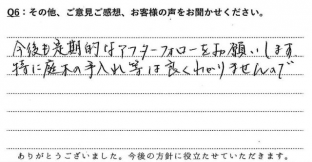 Q6：その他、ご意見ご感想、お客様の声をお聞かせください。
今後も定期的なアフターフォローをお願いします
特に庭木の手入れ等は良くわかりませんので
ありがとうございました。今後の方針に役立たせていただきます。